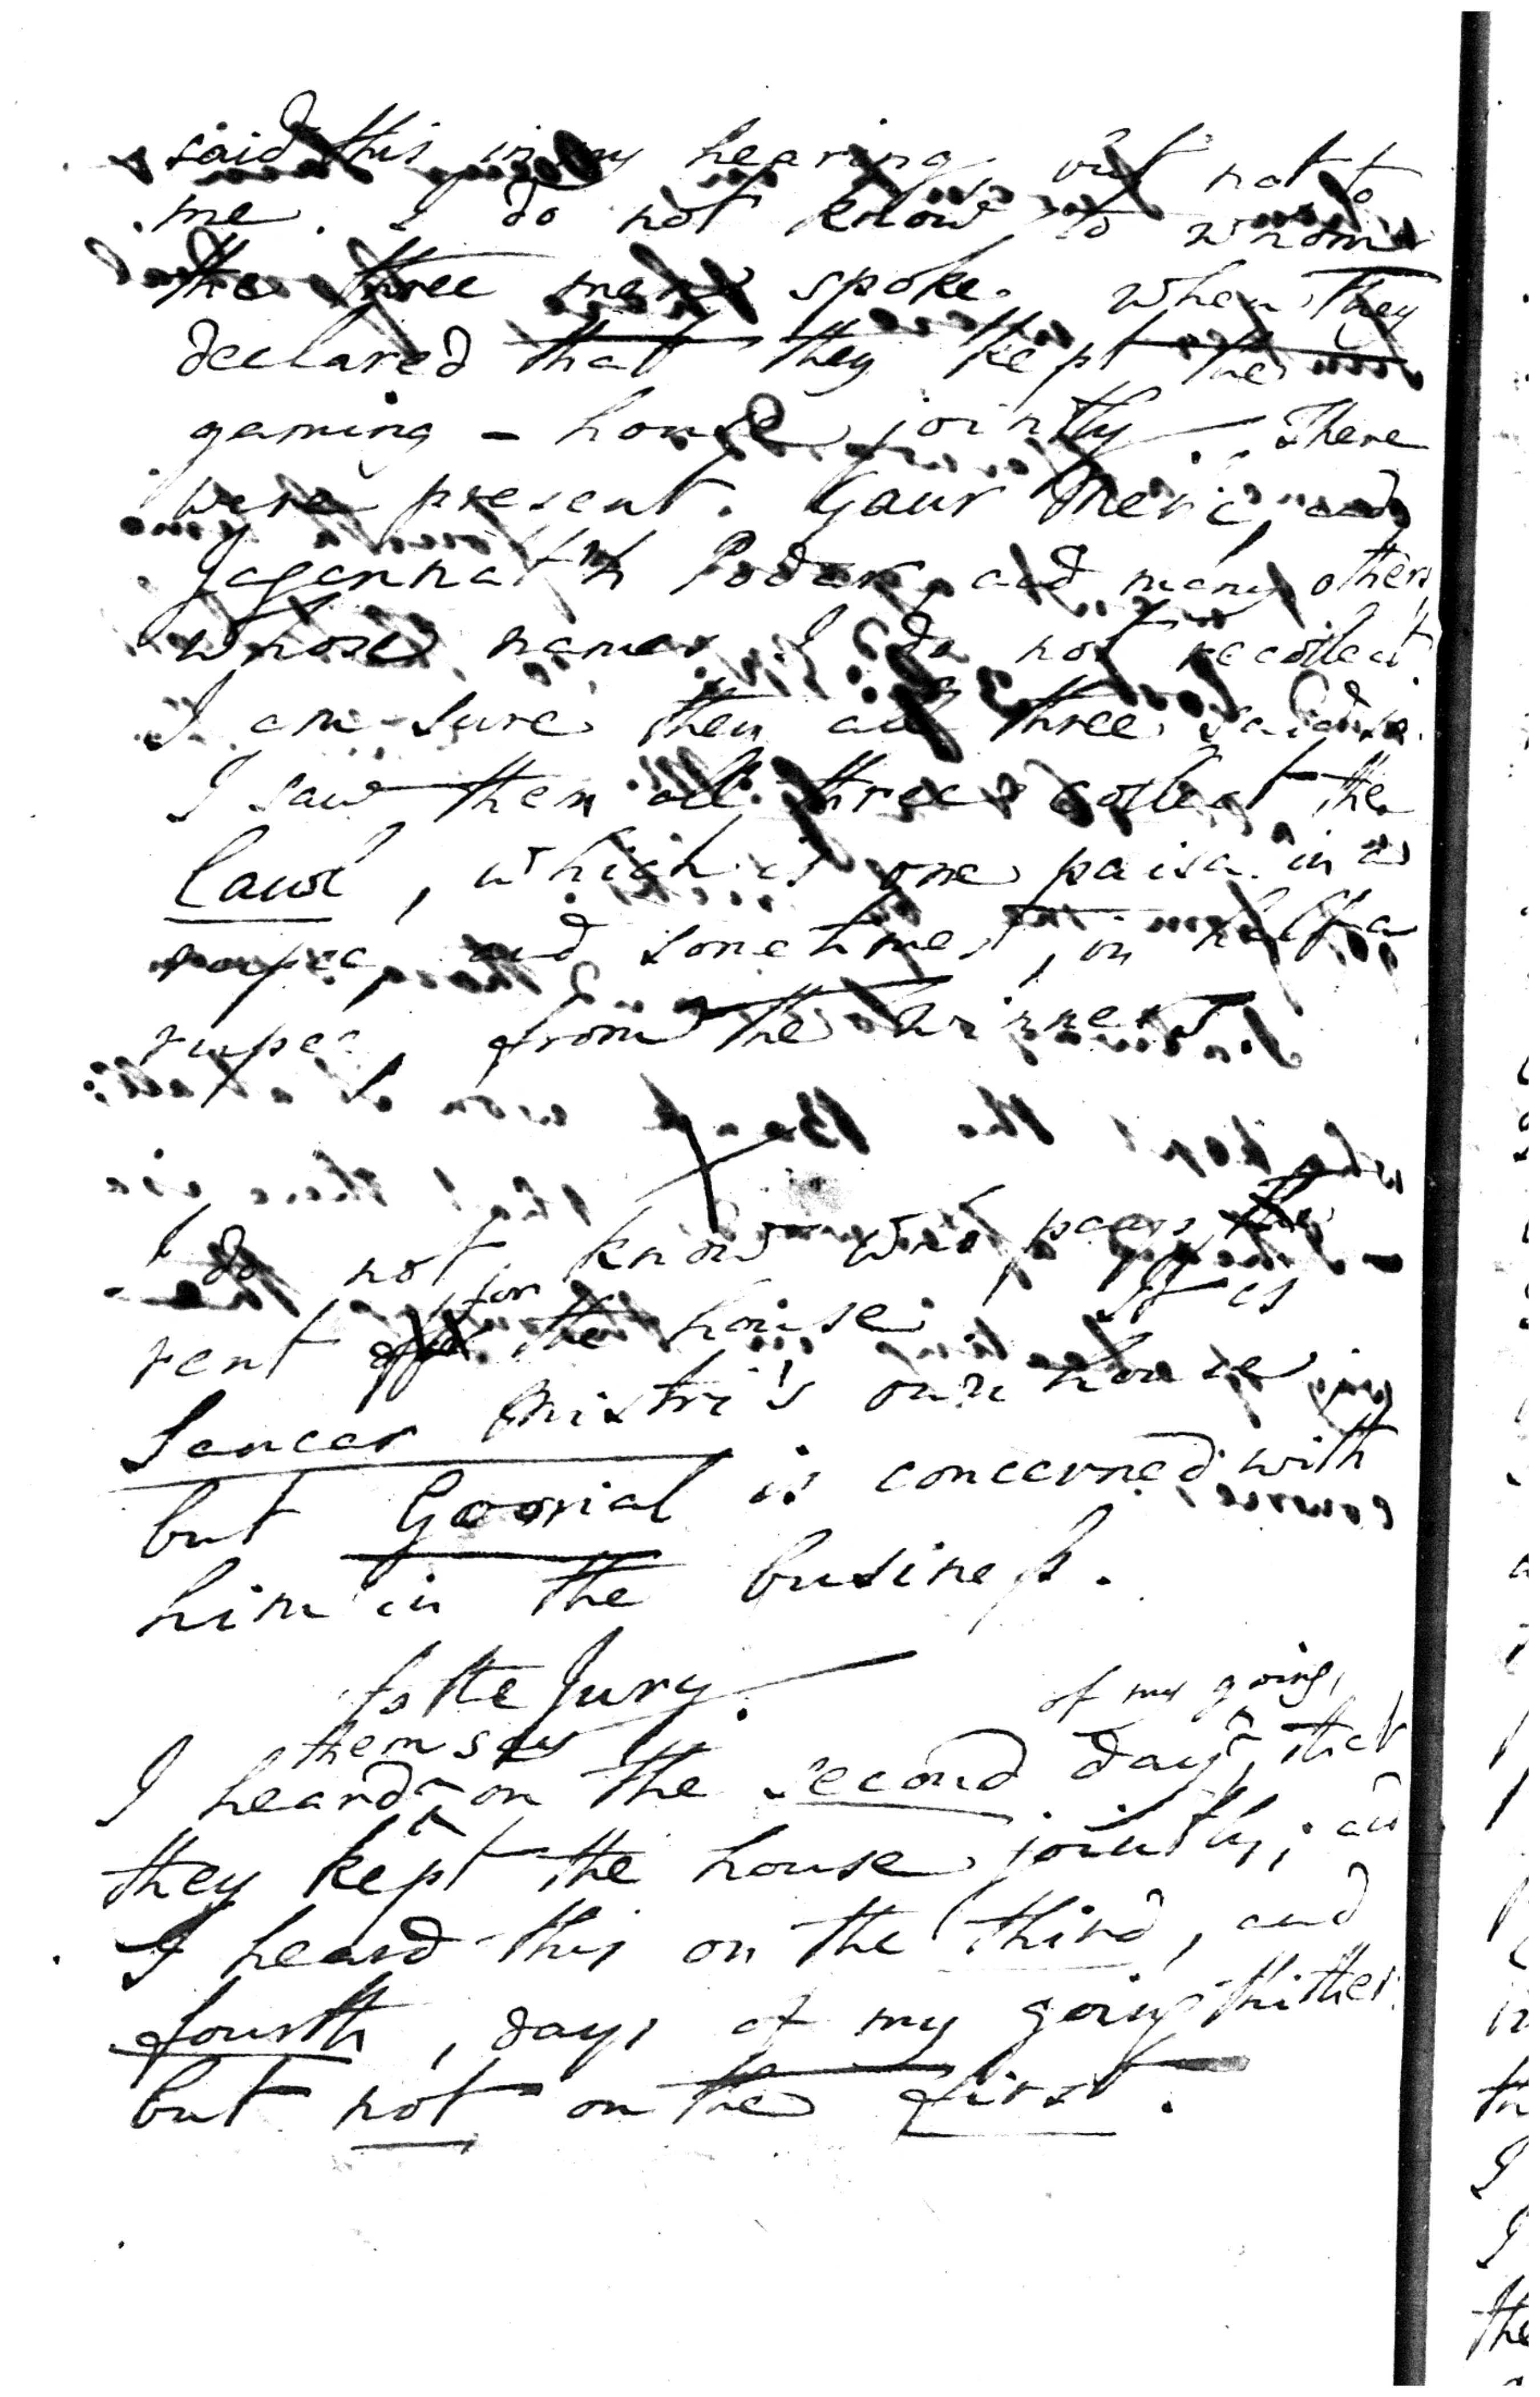 said this in my hearing, but not to
me. I do not know to whom
the three men spoke when they
declared that they kept the
gaming-house jointly. There
were present. Gaur Meric, and
Jagannath Podar, and many others,
whose names I do not recollect.
I am sure they all three said so.
I saw them all three collect the
Cawl, which is one paisa in a
rupee, and sometimes, in half a
rupee, from the winners
I do not know who pays the
rent for the house. It is
Sancar Mistri's own house
but Goorial is concerned with
him in the business.
To the Jury.
I heard them say on the second day of my going, that
they kept the house jointly; and
I heard this on the third, and
fourth, days of my going thither.
but not on the first.